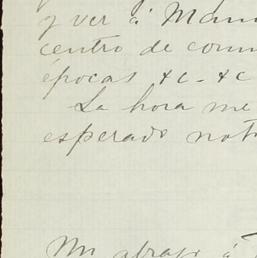 y ver á
centro de
épocas &c - &c
La hora me
esperado
Un abrazo á